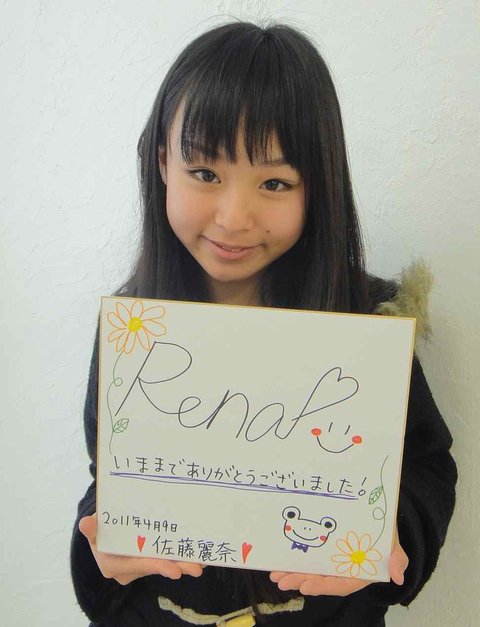 Rena
いままでありがとうございました!
2011年4月9日
佐藤麗奈